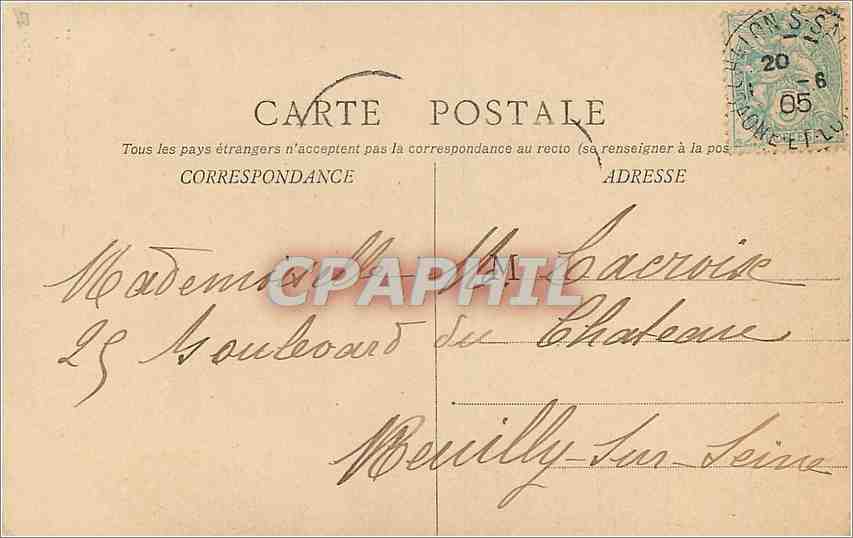 CARTE POSTALE
Tous les pays étrangers n'acceptent pas la correspondance au recto (se renseigner à la pos
CORRESPONDANCE
ADRESSE
20 -6
05
SAONE-ET-LOI
Mademoiselle M Lacroix
CPAPHIL
25 Boulevard du Chateau
Neuilly-sur-Seine